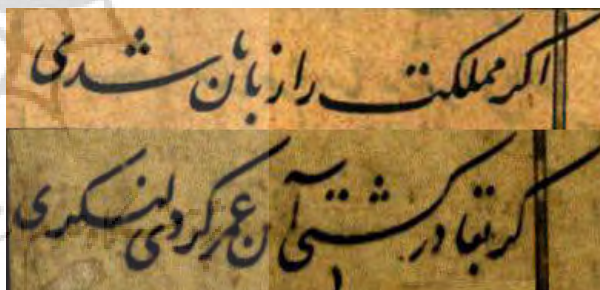 اگر مملکت را زبان باشدی
گر بقا در کشتی آن عمر کردی لنگری